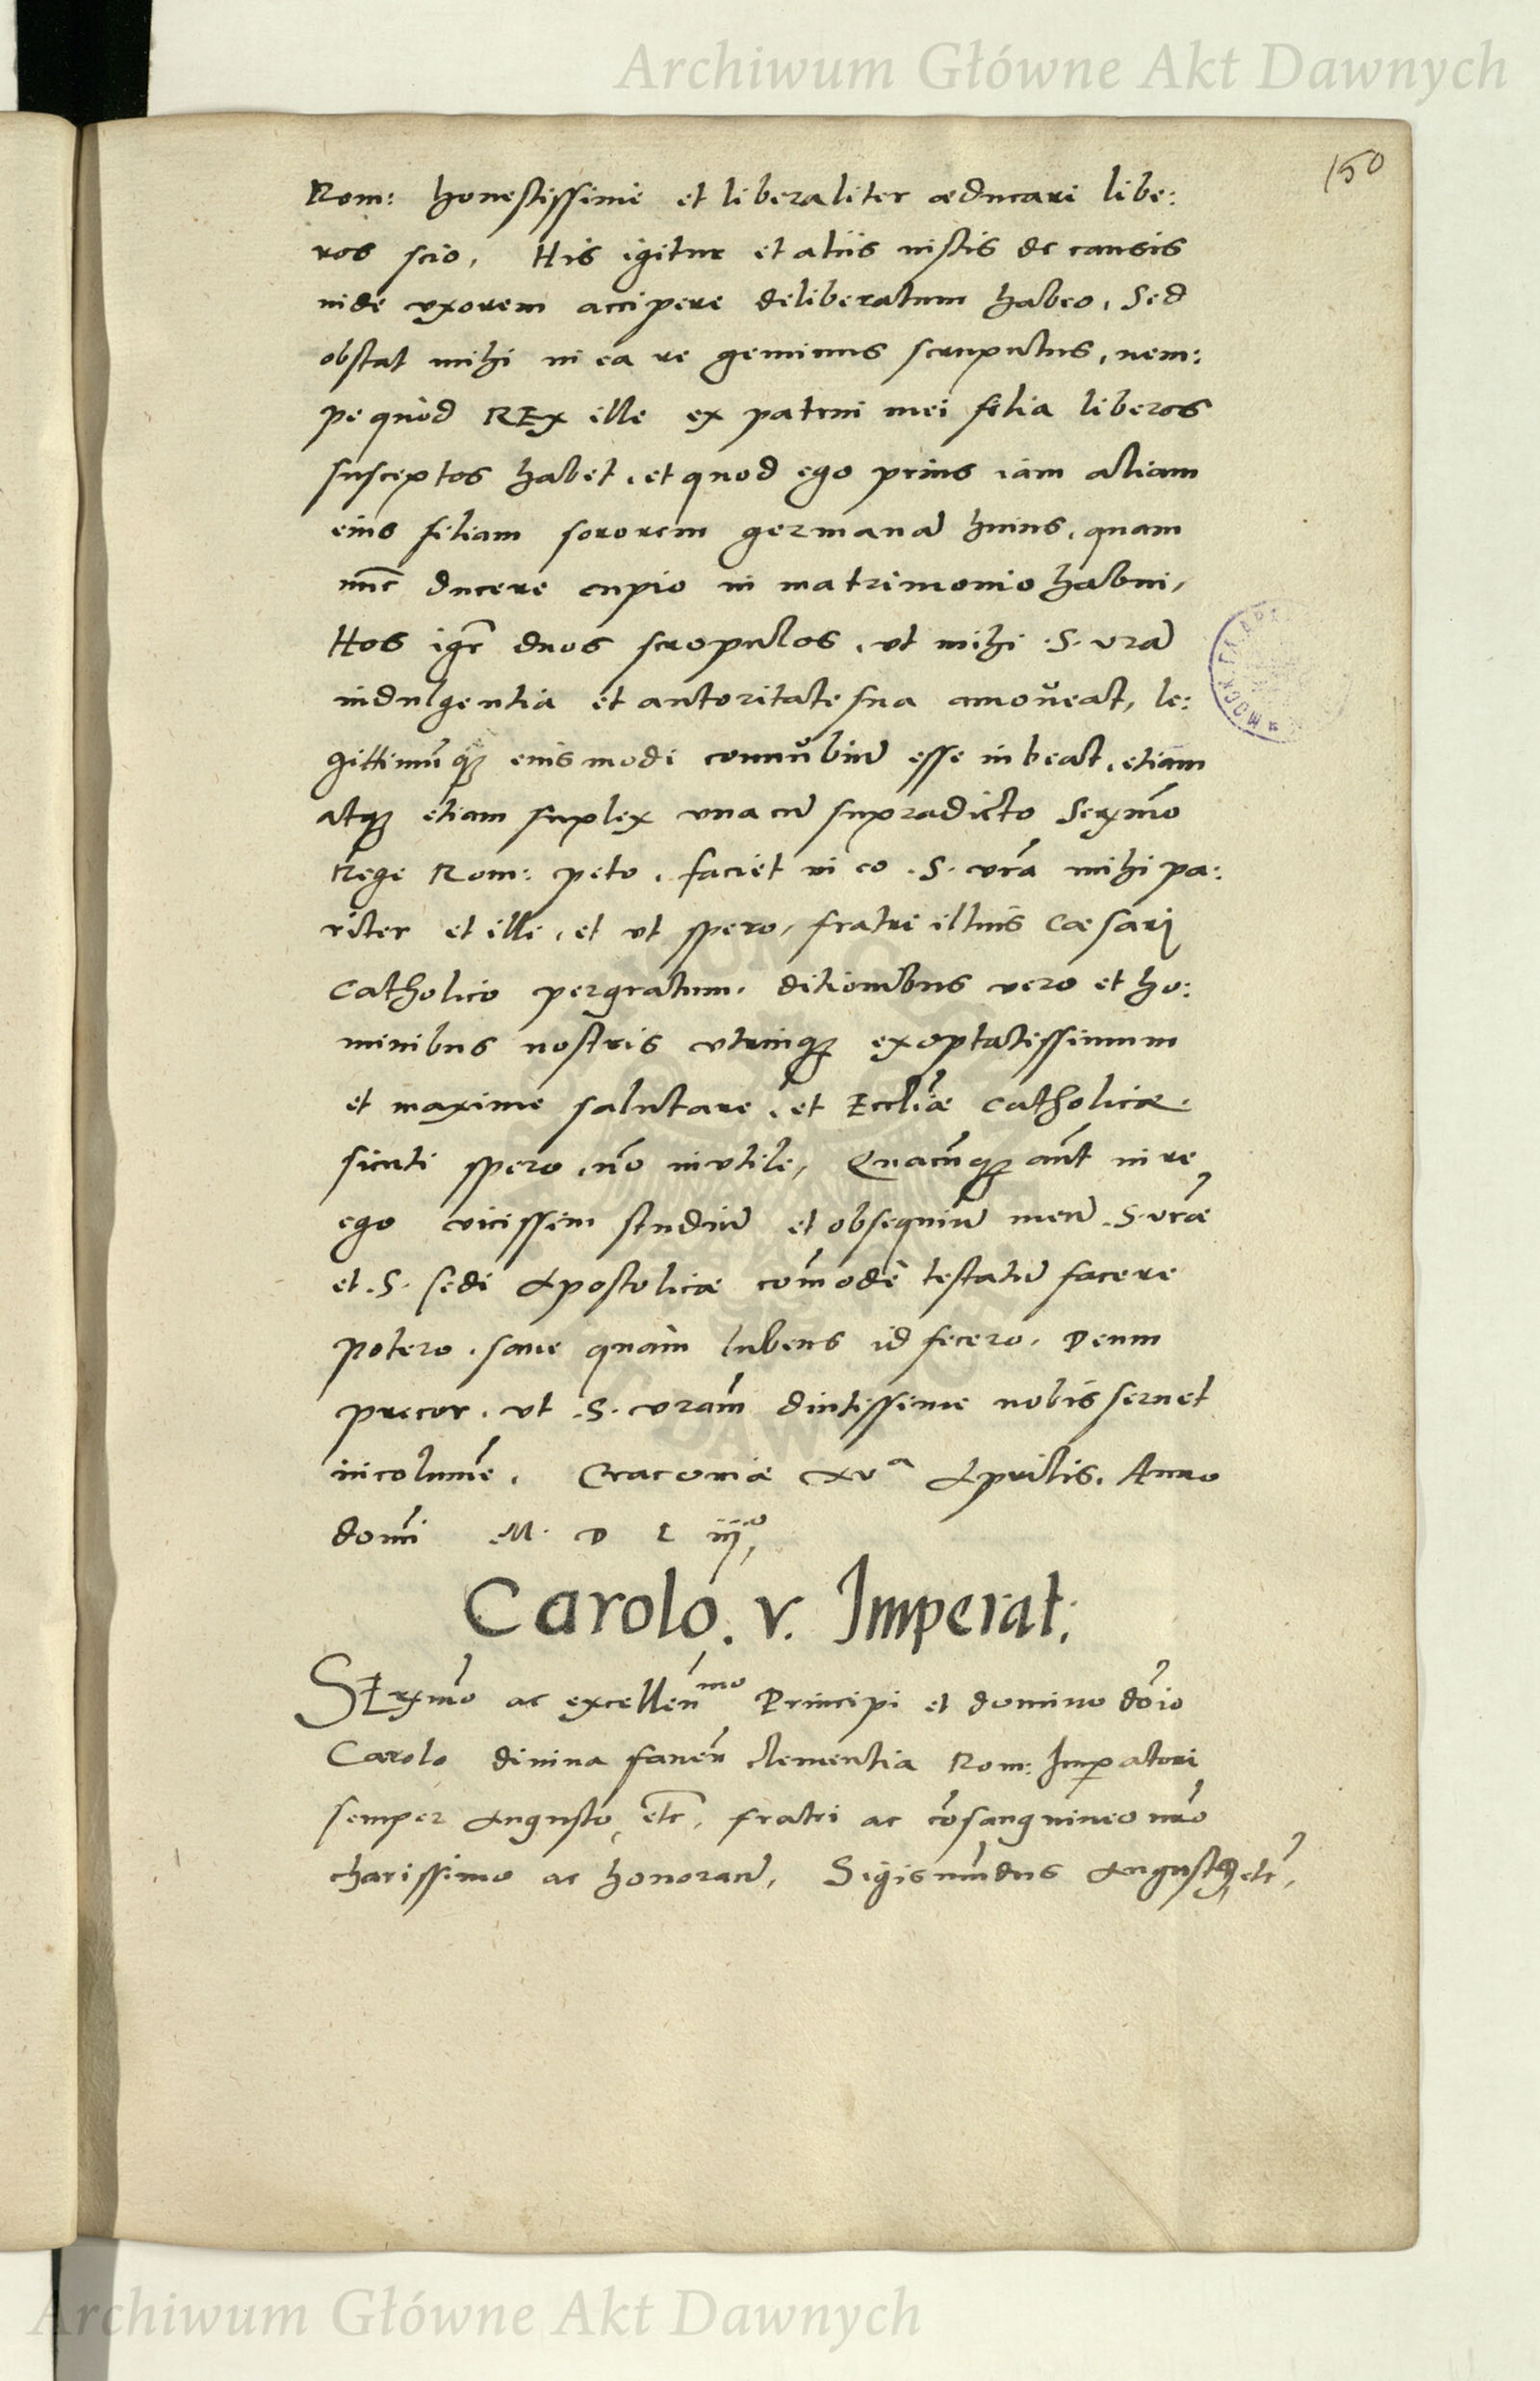 Archiwum Główne Akt Dawnych
150
Rom: honestissime et liberaliter æducari libe:
ros scio. His igitur et aliis iustis de causis
inde uxorem accipere deliberatum habeo. Sed
obstat mihi in ea re geminus scrupulus, nem:
pe quòd REx ille ex patrui mei filia liberos
susceptos habet, et quod ego prius iam aliam
eius filiam sororem germanā huius, quam
nūc ducere cupio in matrimonio habui,
Hos igr̄ duos scrupulos, ut mihi .S. vrā
indulgentia et autoritate sua amoveat, le:
gittimūq; eiusmodi connubiū esse iubeat, etiam
atq; etiam suplex una cū supradicto Serxmo
Rege Rom: peto. faciet in eo .S. vrā mihi pa:
riter et illi, et ut spero, fratri illius Cæsari
Catholico pergratum, ditionibus vero et ho:
minibus nostris utrinq; exoptatissimum
et maxime salutare, et Eccliæ catholicæ
sicuti spero, nō inutile, Quacūq; aūt in re
ego vicissim studiū et obsequiū meū .S. vræ
et .S. sedi Apostolicæ com̄odè testatū facere
potero, sane quàm lubens id fecero. Deum
precor, ut .S. vram̄ diutissime nobis servet
incolumē. Cracoviæ xvᵃ Aprilis. Anno
domi M. D L iijᵒ,
Carolo. v. Imperat:
SErxmo ac excellenᵐᵒ Principi et domino dōio
Carolo divina faveñ clementia Rom: Impatori
semper Augusto, etc, fratri ac cōsanguineo nro
charissimo ac honoraū, Sigismūdus August9, etc,
Archiwum Główne Akt Dawnych